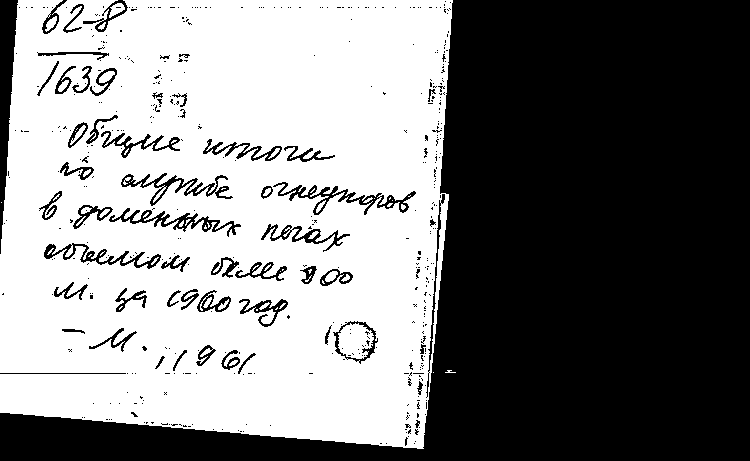 62-8
1639
Общие итоги
по службе огнеупоров
в доменных печах
объемом более 900
м. за 1960 год.
– М., 1961